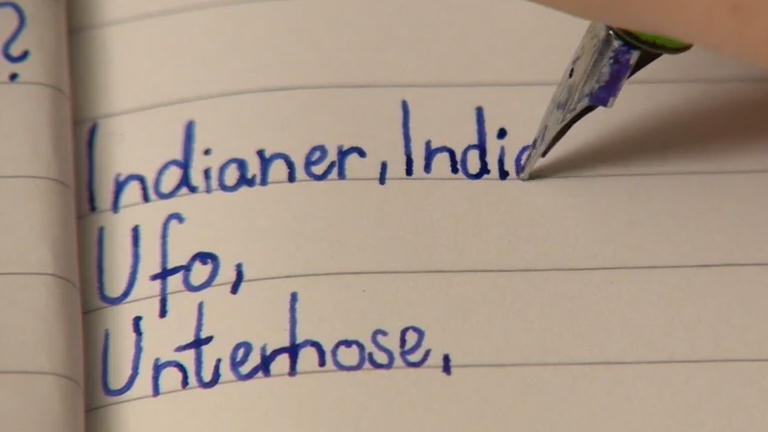 ?
Indianer, India
Ufo,
Unterhose,